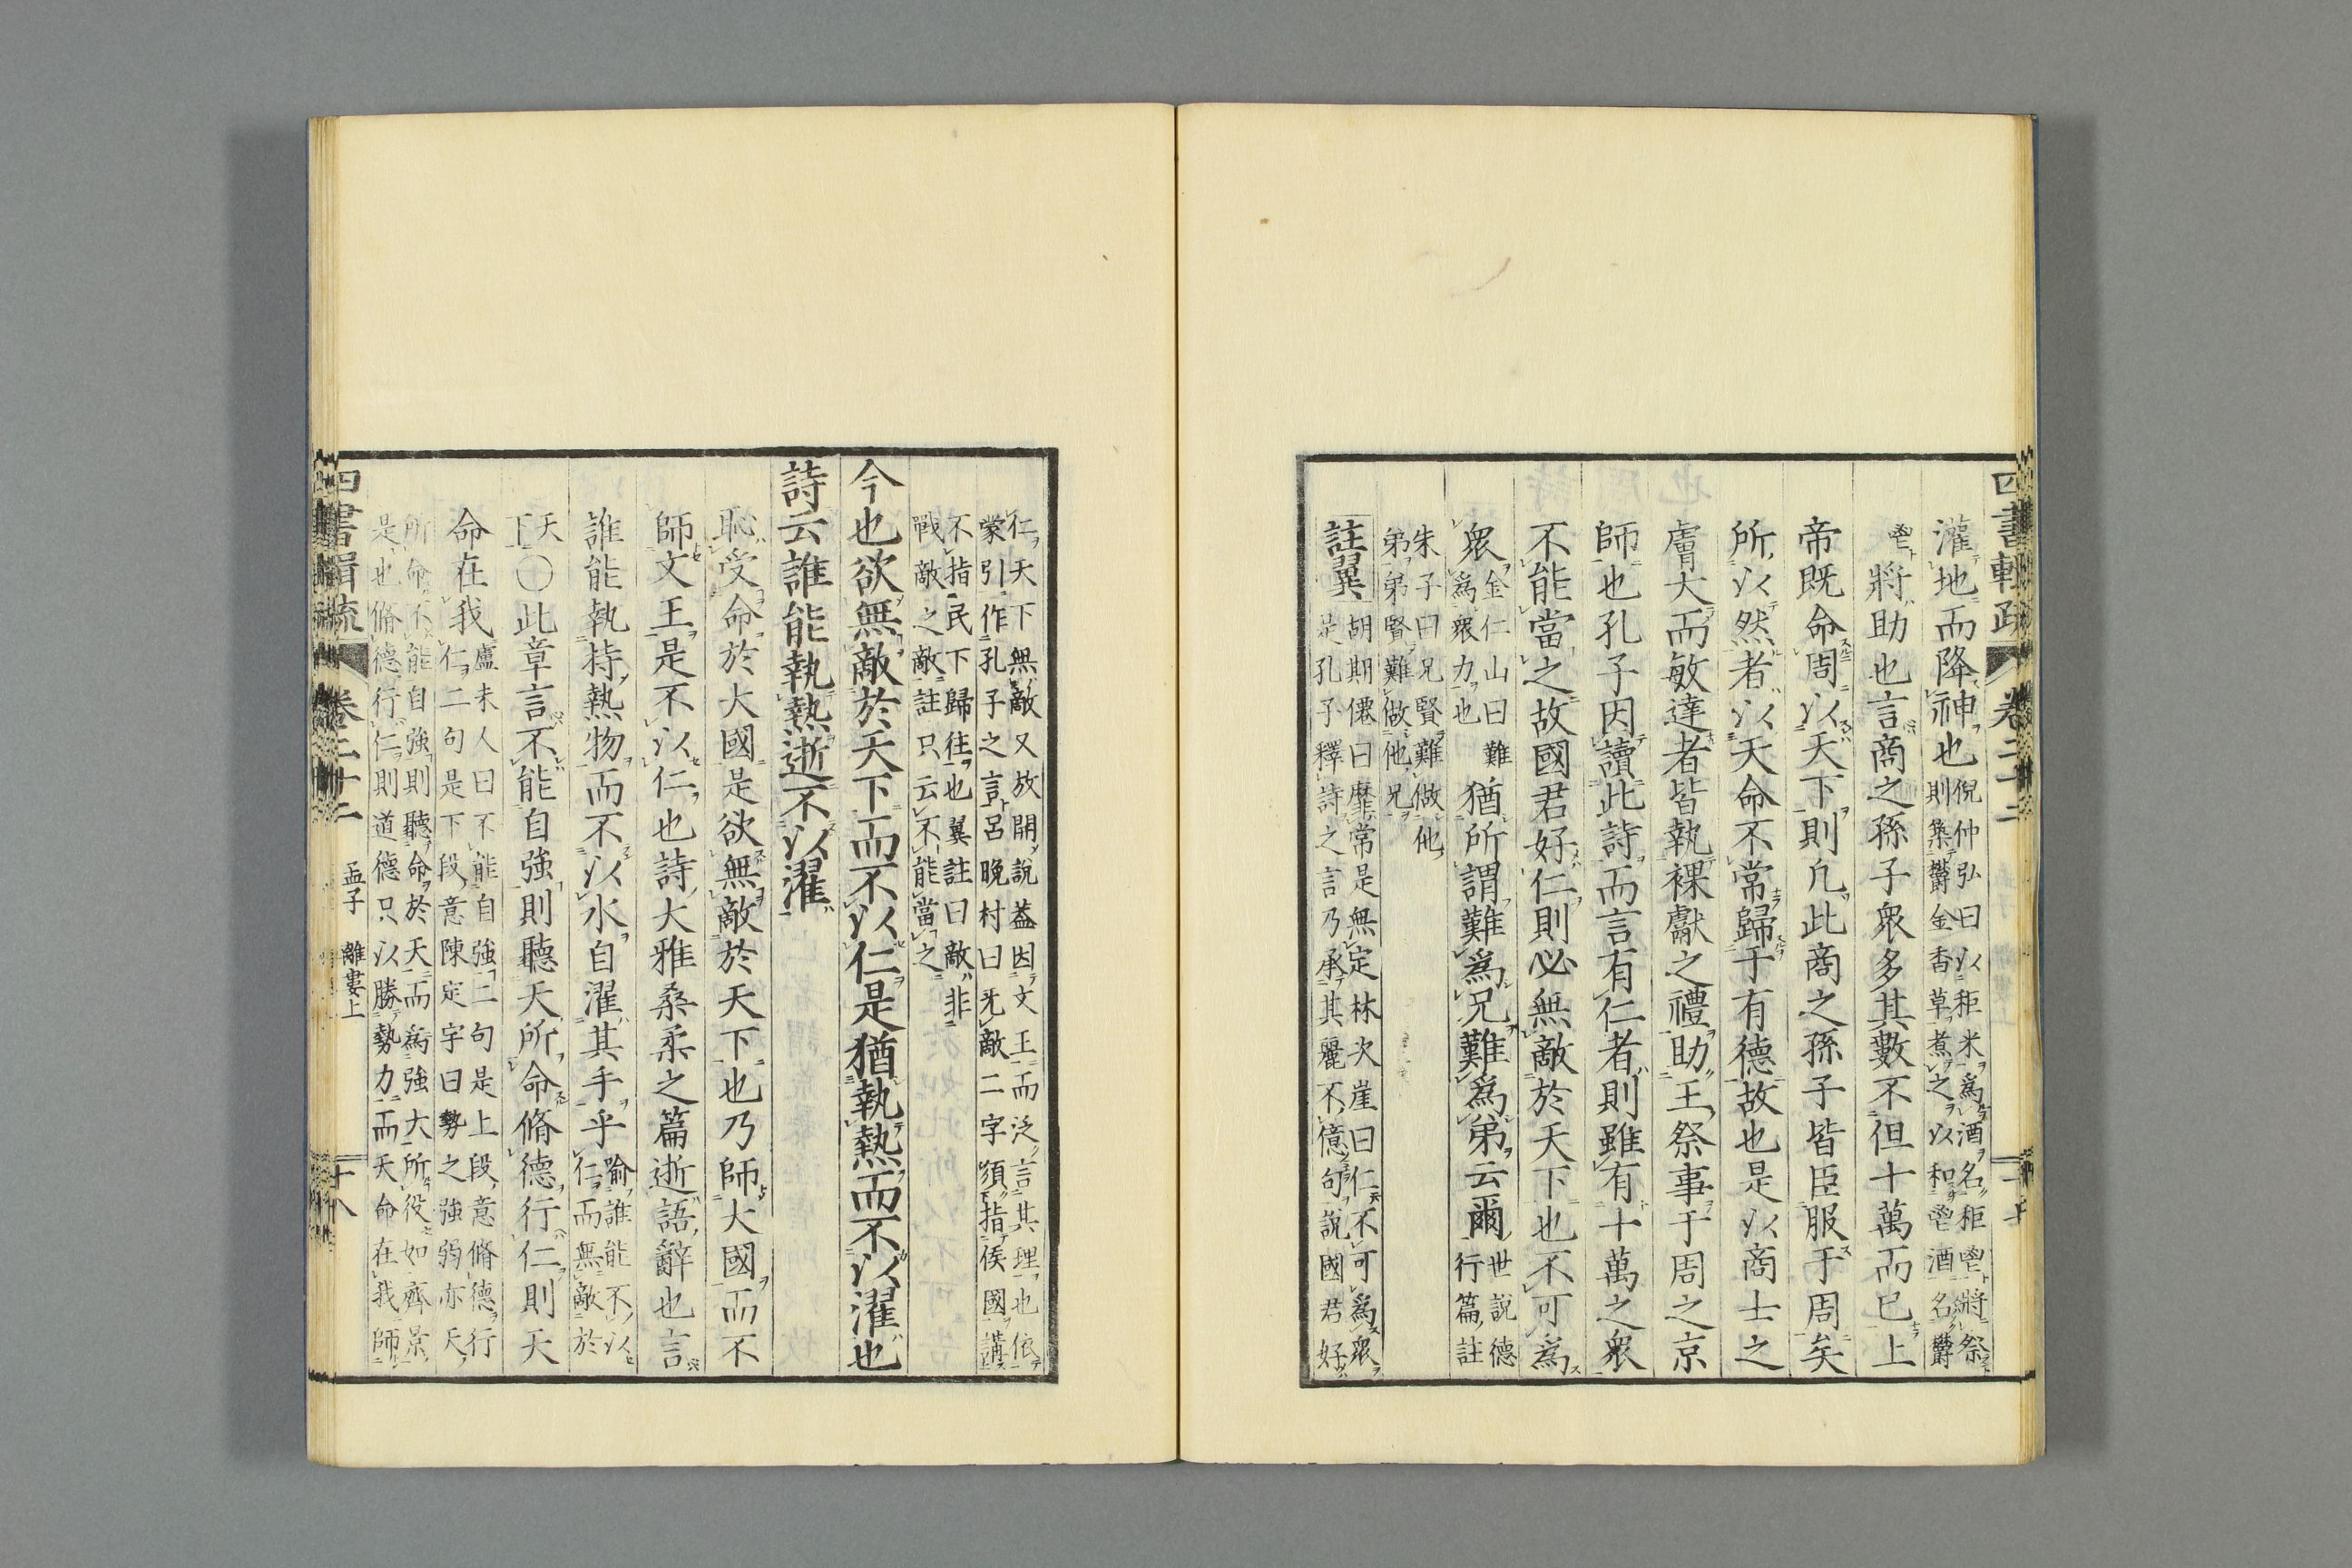 四書輯疏 卷二十二
灌地而降神也倪仲弘曰以秬米爲酒名秬鬯將祭
則築鬱金香草煮之以和鬯酒名鬱
鬯將助也言商之孫子衆多其數不但十萬而已上
帝既命周以天下則凡此商之孫子皆臣服于周矣
所以然者以天命不常歸于有德故也是以商士之
膚大而敏達者皆執祼獻之禮助王祭事于周之京
師也孔子因讀此詩而言有仁者則雖有十萬之衆
不能當之故國君好仁則必無敵於天下也不可爲
衆金仁山曰難
爲衆力也猶所謂難爲兄難爲弟云爾世說德
行篇註
朱子曰兄賢難做他
弟弟賢難做他兄
註翼胡期僊曰靡常是無定林次崖曰仁不可爲衆
是孔子釋詩之言乃承其麗不億句說國君好
仁天下無敵又放開說蓋因文王而泛言其理也依
蒙引作孔子之言呂晚村曰旡敵二字須指侯國講
不指民下歸往也翼註曰敵非
戰敵之敵註只云不能當之
今也欲無敵於天下而不以仁是猶執熱而不以濯也
詩云誰能執熱逝不以濯
恥受命於大國是欲無敵於天下也乃師大國而不
師文王是不以仁也詩大雅桑柔之篇逝語辭也言
誰能執持熱物而不以水自濯其手乎喻誰能不以
仁而無敵於
天
下〇此章言不能自強則聽天所命脩德行仁則天
命在我盧未人曰不能自強二句是上段意脩德行
仁二句是下段意陳定宇曰勢之強弱亦天
所命不能自強則聽命於天而爲強大所役如齊景
是也脩德行仁則道德只以勝勢力而天命在我師
四書輯疏 卷二十二 孟子 離婁上 十八